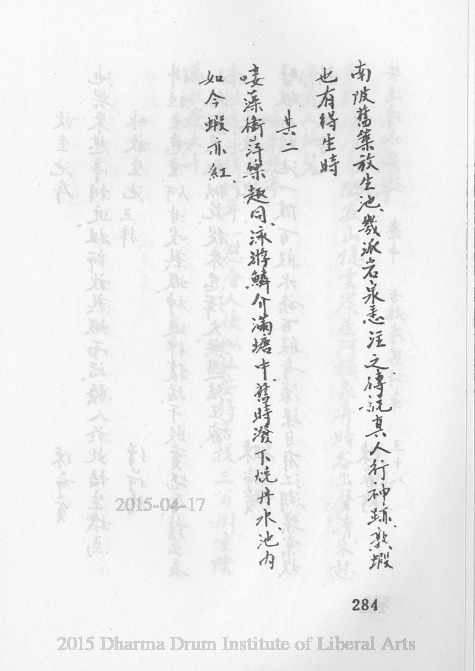 南陂舊築放生池、幾派岩泉悉注之、傳説真人行神跡、熟蝦
也有得生時
其二
唼藻銜萍樂趣同、泳游鱗介滿塘中、舊時潑下燒丹水、池内
如今蝦亦紅、
2015-04-17
284
2015 Dharma Drum Institute of Liberal Arts